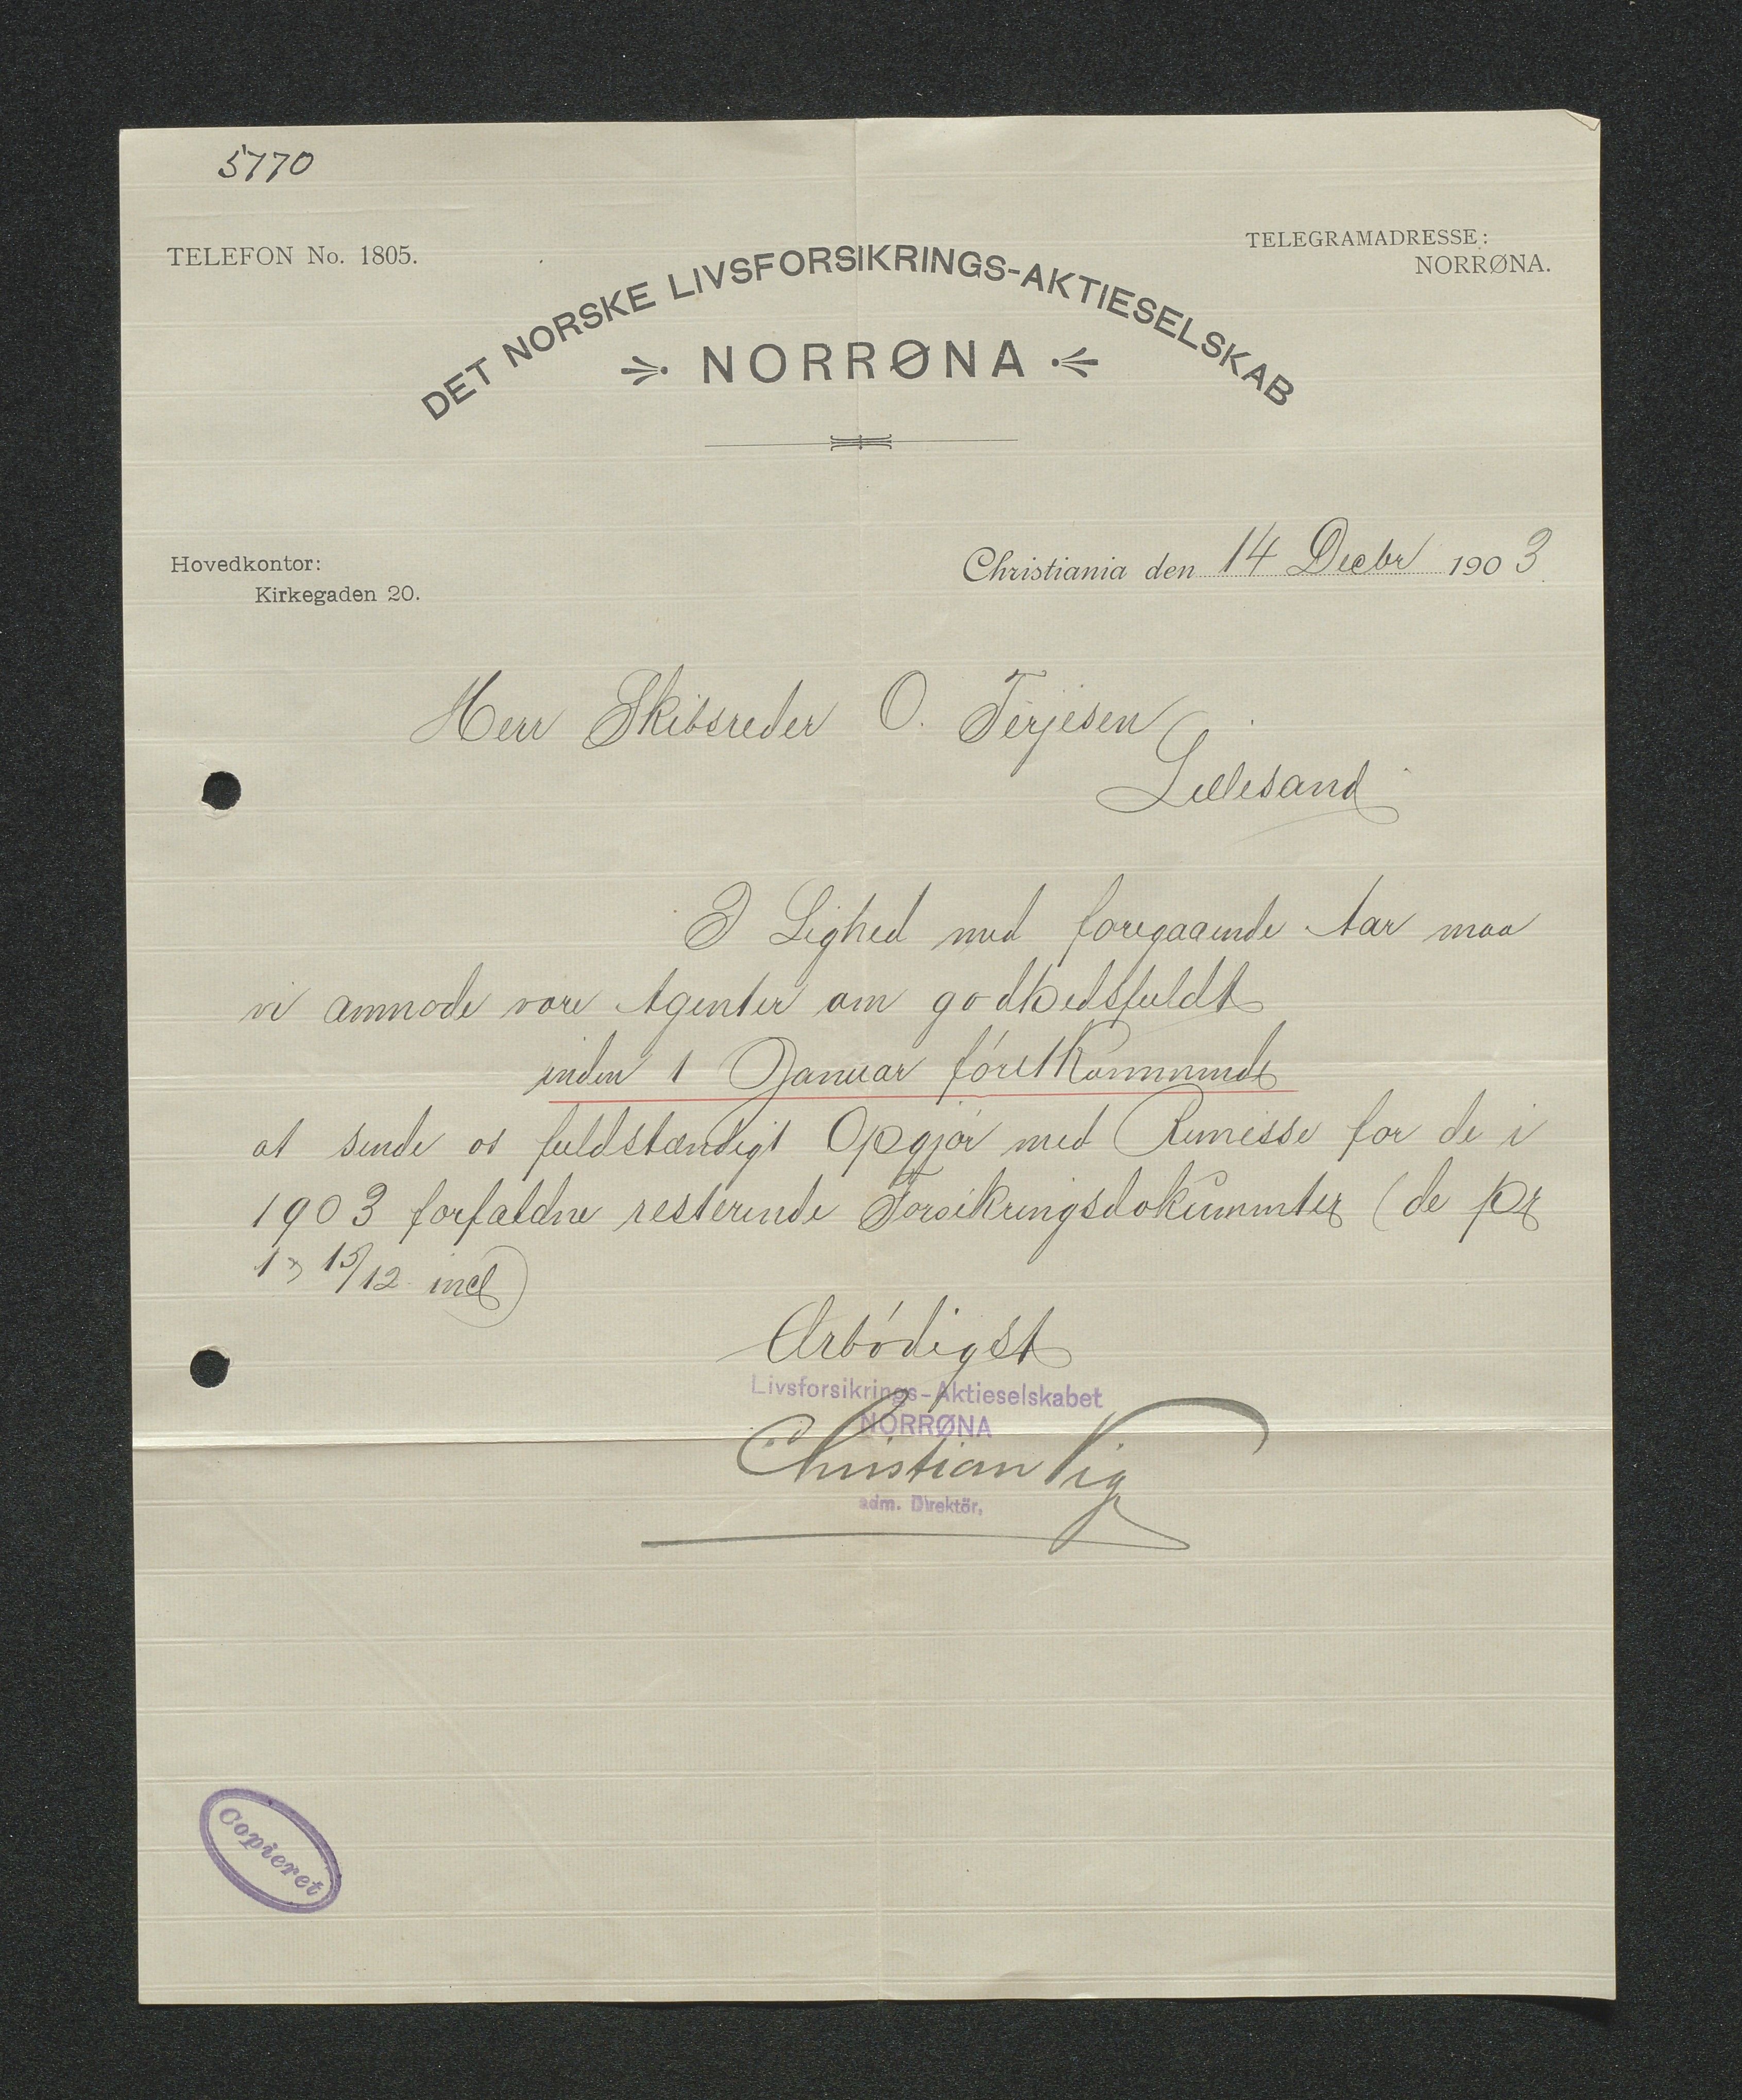 5770
TELEFON No. 1805.
TELEGRAMADRESSE:
NORRØNA.
DET NORSKE LIVSFORSIKRINGS-AKTIESELSKAB
NORRØNA
Hovedkontor:
Kirkegaden 20.
Christiania den 14 Decbr 1903
Herr Skibsreder O. Terjesen
Lillesand
I Lighed med foregaaende Aar maa
vi anmode vore Agenter om godhedsfuldt
inden 1 Januar förstkommende
at sende os fuldstændigt Opgjör med Remisse for de i
1903 forfaldne resterende Forsikringsdokumenter (de pr
15/12 incl)
Ærbödigst
Livsforsikrings-Aktieselskabet
NORRØNA
Christian Vig
adm. Direktör.
Copieret